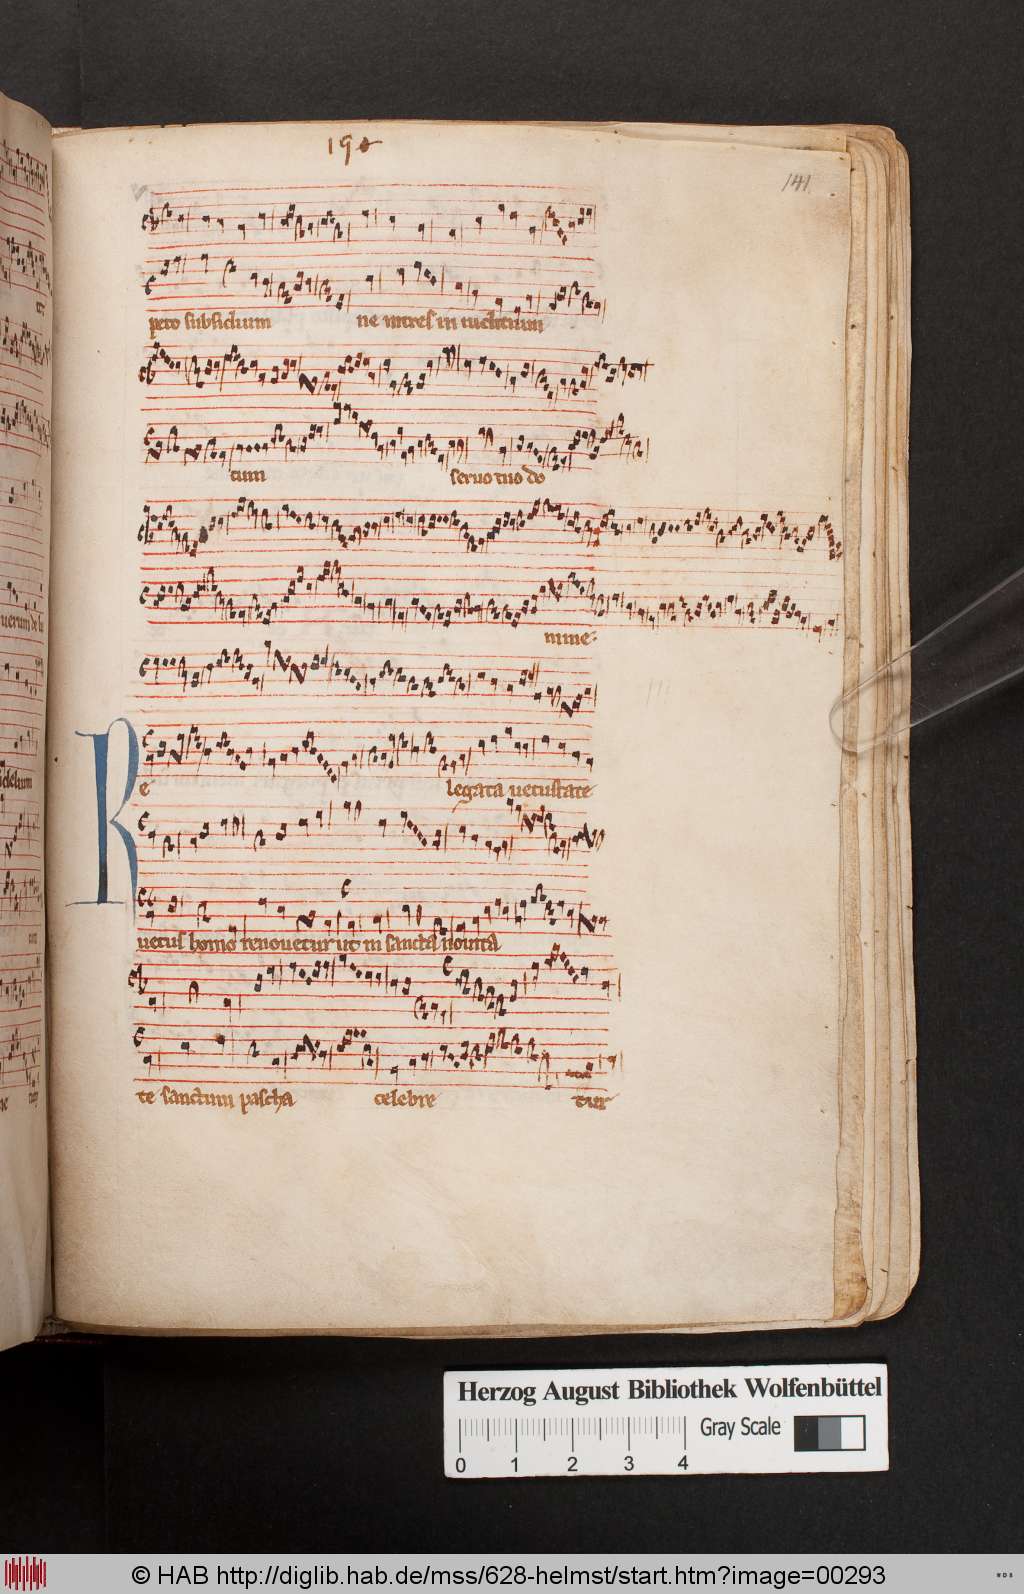 190
141
peto subsidium ne intres in iudicium
cum servo tuo do
mine
Relegata vetustate
vetus homo renovetur ut in sancta novita
te sanctum pascha celebre tur
Herzog August Bibliothek Wolfenbüttel
Gray Scale
0 1 2 3 4
© HAB http://diglib.hab.de/mss/628-helmst/start.htm?image=00293